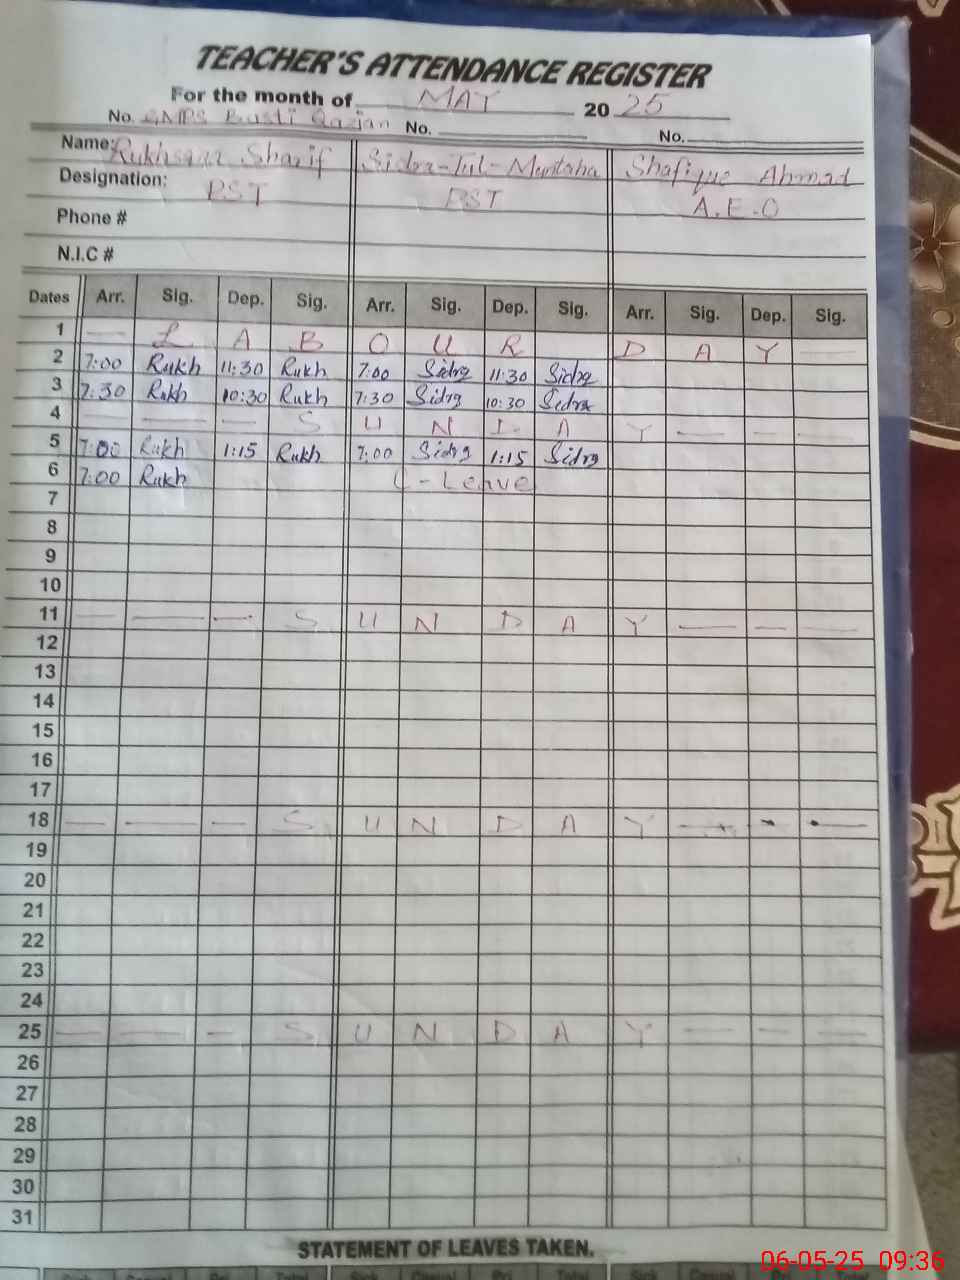 TEACHER'S ATTENDANCE REGISTER
For the month of MAY 20 25
No. GMPS Basti Qazian No. No.
Name: Rukhsar Sharif Sidra-Tul-Muntaha Shafique Ahmad
Designation: PST PST A.E.O
Phone #
N.I.C #
Dates Arr. Sig. Dep. Sig. Arr. Sig. Dep. Sig. Arr. Sig. Dep. Sig.
1 — L A B O U R D A Y —
2 7:00 Rukh 11:30 Rukh 7:00 Sidra 11:30 Sidra
3 7:30 Rukh 10:30 Rukh 7:30 Sidra 10:30 Sidra
4 — — — S U N D A Y — — —
5 7:00 Rukh 1:15 Rukh 7:00 Sidra 1:15 Sidra
6 7:00 Rukh C-Leave
7
8
9
10
11 — — — S U N D A Y — — —
12
13
14
15
16
17
18 — — — S U N D A Y — — —
19
20
21
22
23
24
25 — — — S U N D A Y — — —
26
27
28
29
30
31
STATEMENT OF LEAVES TAKEN.
06-05-25 09:36